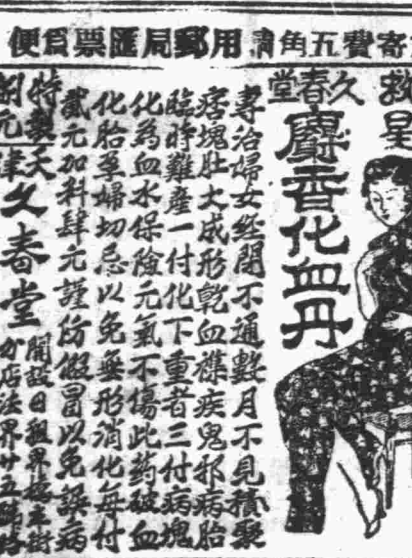 寄費五角請用郵局匯票爲便
救星
久春堂
麝香化血丹
專治婦女經閉不通數月不見積聚
痞塊肚大成形乾血癆疾鬼邪病胎
臨時難產一付化下重者三付病塊
化為血水保險元氣不傷此药破血
化胎孕婦切忌以免無形消化每付
貳元加料肆元謹防假冒以免誤病
特製
元
天津
久春堂
開設日租界橋立街
分店法界廿五號路